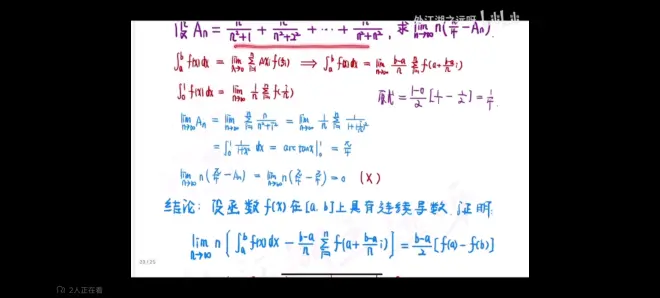 外江湖之远呀
设 Aₙ = n/(n²+1) + n/(n²+2²) + ··· + n/(n²+n²), 求 lim_{n→∞} n(π/4 - Aₙ).
∫ₐᵇ f(x)dx = lim_{n→∞} Σ_{i=1}^{n} Δxᵢ f(ξᵢ) ⟹ ∫ₐᵇ f(x)dx = lim_{n→∞} (b-a)/n Σ_{i=1}^{n} f(a+(b-a)/n i)
∫₀¹ f(x)dx = lim_{n→∞} 1/n Σ_{i=1}^{n} f(i/n) 原式 = (1-0)/2 [1 - 1/2] = 1/4.
lim_{n→∞} Aₙ = lim_{n→∞} Σ_{i=1}^{n} n/(n²+i²) = lim_{n→∞} 1/n Σ_{i=1}^{n} 1/(1+(i/n)²)
= ∫₀¹ 1/(1+x²) dx = arctanx|₀¹ = π/4
lim_{n→∞} n(π/4 - Aₙ) = lim_{n→∞} n(π/4 - π/4) = 0 (×)
结论: 设函数 f(x) 在 [a,b] 上具有连续导数, 证明:
lim_{n→∞} n[∫ₐᵇ f(x)dx - (b-a)/n Σ_{i=1}^{n} f(a+(b-a)/n i)] = (b-a)/2 [f(a) - f(b)]
2人正在看